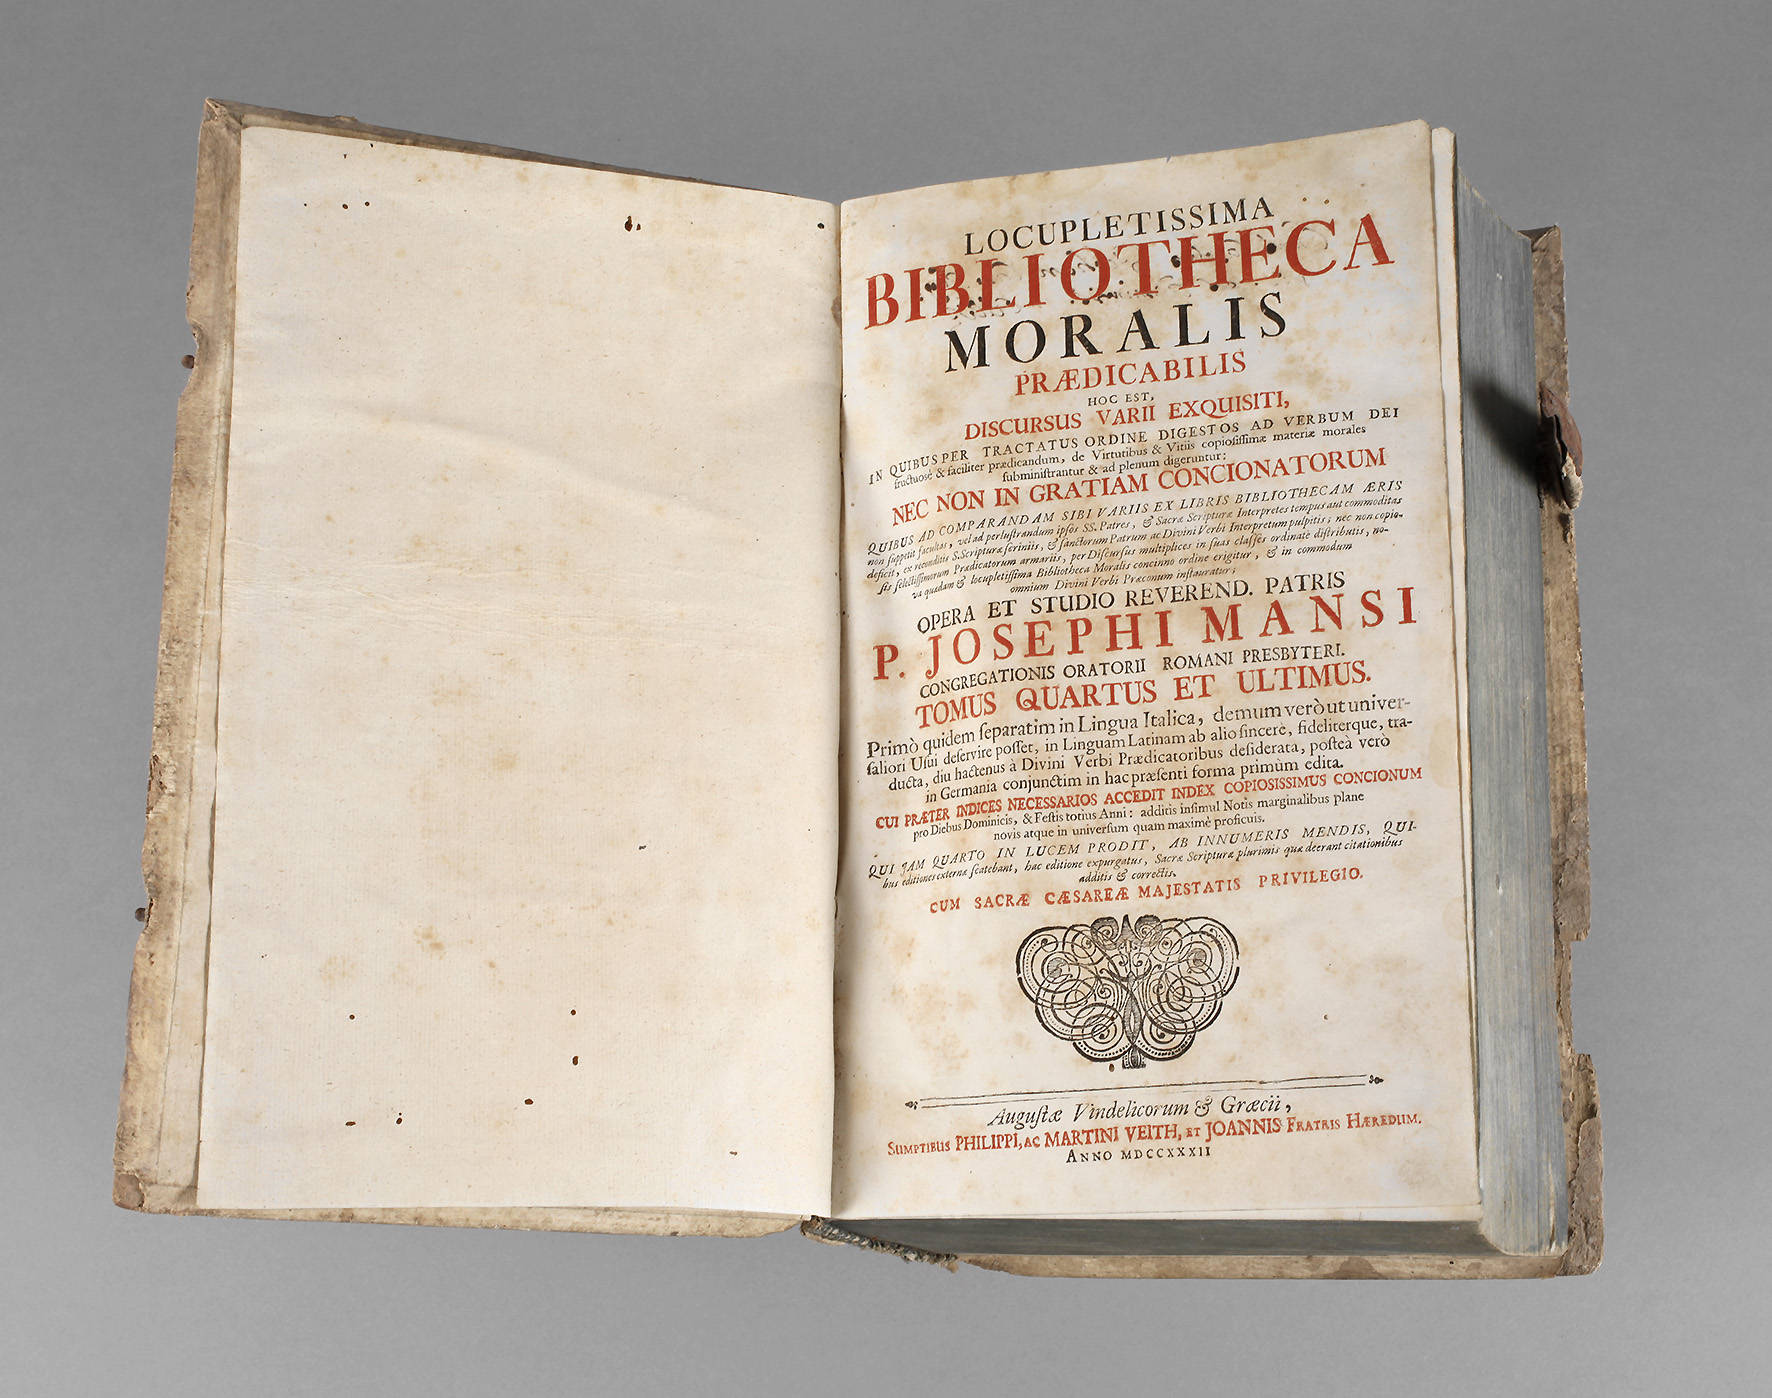 LOCUPLETISSIMA
BIBLIOTHECA
MORALIS
PRÆDICABILIS
HOC EST,
DISCURSUS VARII EXQUISITI,
IN QUIBUS PER TRACTATUS ORDINE DIGESTOS AD VERBUM DEI
fructuosè & faciliter prædicandum, de Virtutibus & Vitiis copiosissimæ materiæ morales
subministrantur & ad plenum digeruntur:
NEC NON IN GRATIAM CONCIONATORUM
QUIBUS AD COMPARANDAM SIBI VARIIS EX LIBRIS BIBLIOTHECAM ÆRIS
non suppetit facultas, vel ad perlustrandum ipsos SS. Patres, & Sacræ Scripturæ Interpretes tempus aut commoditas
deficit, ex reconditis S. Scripturæ scriniis, & sanctorum Patrum ac Divini Verbi Interpretum pulpitis, nec non copio-
sis selectissimorum Prædicatorum armariis, per Discursus multiplices in suas classes ordinatè distributis, no-
va quædam & locupletissima Bibliotheca Moralis concinno ordine erigitur, & in commodum
omnium Divini Verbi Præconum instauratur;
OPERA ET STUDIO REVEREND. PATRIS
P. JOSEPHI MANSI
CONGREGATIONIS ORATORII ROMANI PRESBYTERI.
TOMUS QUARTUS ET ULTIMUS.
Primò quidem separatim in Lingua Italica, demum verò ut univer-
saliori Usui deservire posset, in Linguam Latinam ab alio sincerè, fideliterque, tra-
ducta, diu hactenus à Divini Verbi Prædicatoribus desiderata, posteà verò
in Germania conjunctim in hac præsenti forma primùm edita.
CUI PRÆTER INDICES NECESSARIOS ACCEDIT INDEX COPIOSISSIMUS CONCIONUM
pro Diebus Dominicis, & Festis totius Anni: additis insimul Notis marginalibus plane
novis atque in universum quam maximè proficuis.
QUI JAM QUARTO IN LUCEM PRODIT, AB INNUMERIS MENDIS, QUI-
bus editiones externæ scatebant, hac editione expurgatus, Sacræ Scripturæ plurimis quæ deerant citationibus
additis & correctis.
CUM SACRÆ CÆSAREÆ MAJESTATIS PRIVILEGIO.
Augustæ Vindelicorum & Græcii,
SUMPTIBUS PHILIPPI, AC MARTINI VEITH, ET JOANNIS FRATRIS HÆREDUM.
ANNO MDCCXXXII